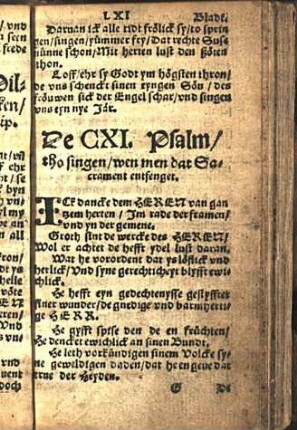 LXI Bladt.
Darvan ick alle tidt frölick sy/to sprin
gen/singen/ymmer fry/dat rechte Sus-
ninne schon/Mit herten lust den söten
thon.
Loff/ehr sy Godt ym högsten thron/
de vns schenckt sinen eyngen Sön/ des
fröuwen sick der Engel schar/vnd singen
vns eyn nye Jár.
De CXI. Psalm/
tho singen/wen men dat Sa-
crament entfenget.
ICk dancke dem HEREN van gan
tzem herten/ Im rade der framen/
vnd yn der gemene.
Groth sint de wercke des HEREN/
Wol er achtet de hefft ydel lust daran.
Wat he vorordent dat ys löflick vnd
herlick/Vnd syne gerechticheyt blyfft ewi-
chlick.
He hefft eyn gedechtenysse gestyfftet
siner wunder/de gnedige vnd barmherti
ge HERR.
He gyfft spise den de en früchten/
He dencket ewichlick an sinen Bundt.
He leth vorkündigen sinem Volcke sy-
ne geweldigen daden/dat he en geue dat
erue der Heyden.
G De